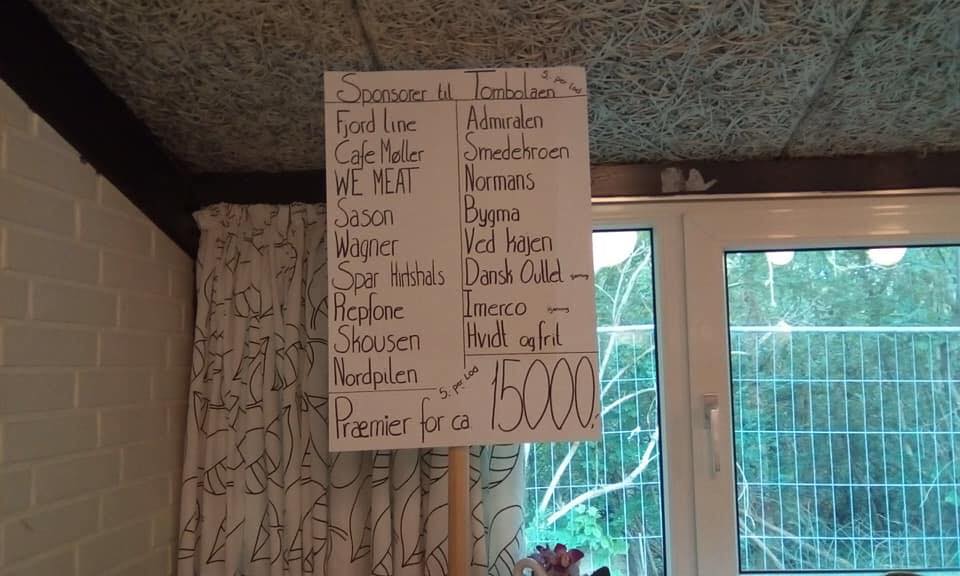 Sponsorer til Tombolaen 5. per Lod
Fjord line
Cafe Møller
WE MEAT
Sason
Wagner
Spar Hirtshals
Repfone
Skousen
Nordpilen
Admiralen
Smedekroen
Normans
Bygma
Ved kajen
Dansk Oullet
Imerco
Hvidt og frit
5. per Lod
Præmier for ca. 15000,-